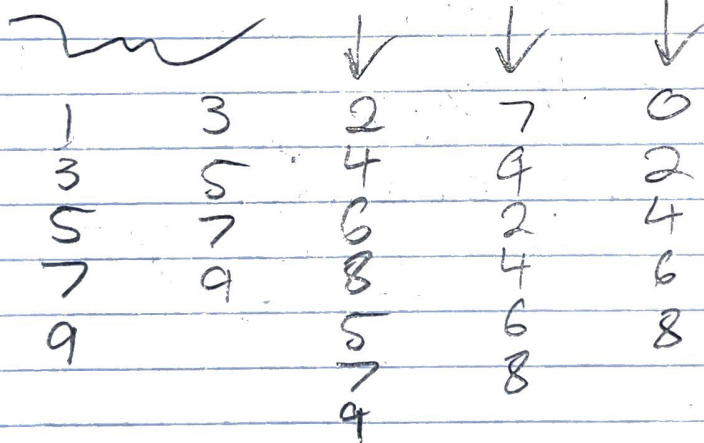 1 3 2 7 0
3 5 4 9 2
5 7 6 2 4
7 9 8 4 6
9 5 6 8
7 8
9